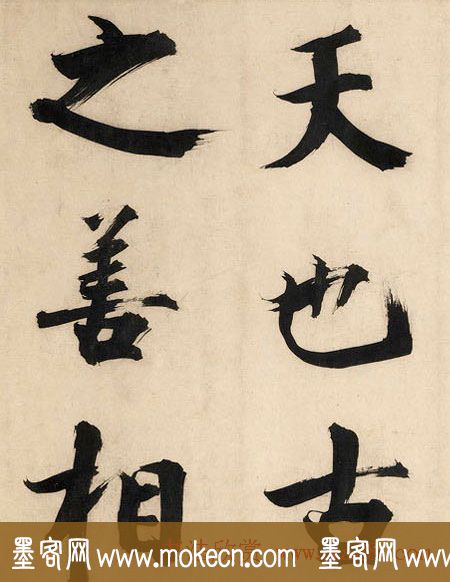 天也古
之善相
墨客网 www.mokecn.com 墨客网